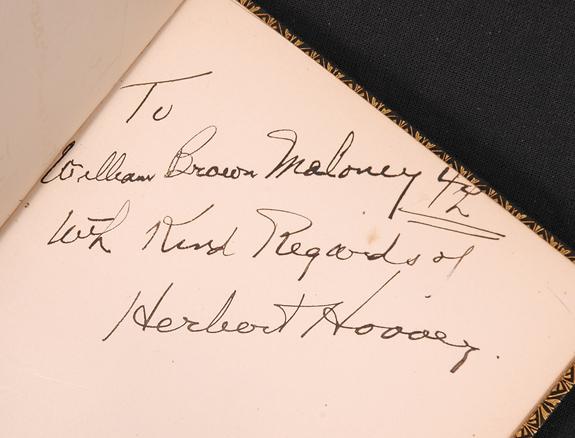 To
William Brown Meloney 4th
With Kind Regards of
Herbert Hoover.